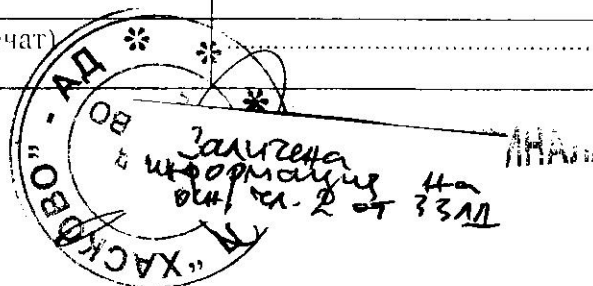 чат)
"ХАСКОВО" - АД
ВО
Заличена
информация на
осн. чл. 2 от ЗЗЛД